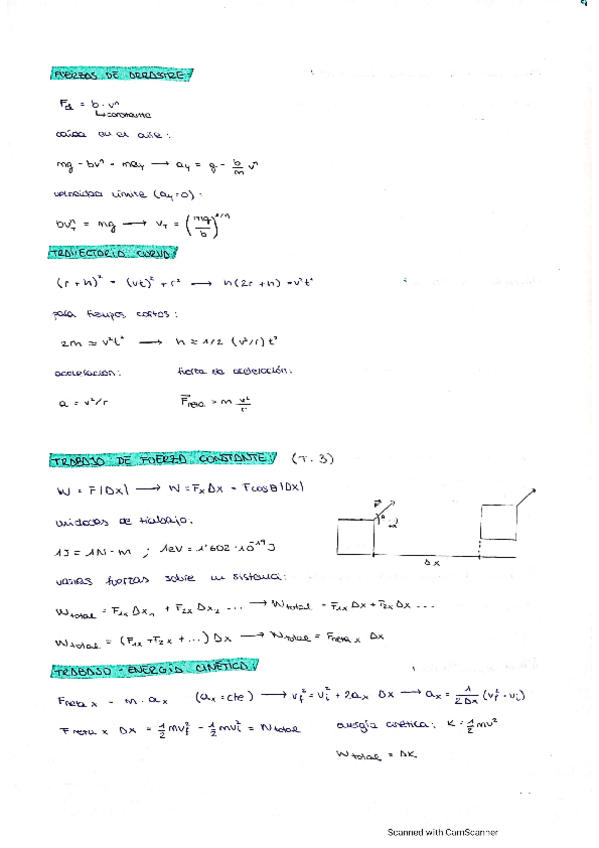 FUERZAS DE ARRASTRE/
Fd = b · vⁿ
↳ constante
caída en el aire:
mg - bvⁿ = may → ay = g - b/m vⁿ
velocidad límite (ay=0):
bv_Tⁿ = mg → v_T = (mg/b)^1/n
TRAYECTORIA CURVA/
(r + h)² = (vt)² + r² → h(2r + h) = v²t²
para tiempos cortos:
2rh ≈ v²t² → h ≈ 1/2 (v²/r) t²
aceleración: fuerza de aceleración:
a = v²/r F⃗neta = m v²/r
TRABAJO DE FUERZA CONSTANTE/ (T. 3)
W = F|Δx| → W = Fx Δx = F cosθ |Δx|
unidades de trabajo:
1J = 1N · m ; 1eV = 1'602 · 10⁻¹⁹ J
F⃗
Δx
varias fuerzas sobre un sistema:
Wtotal = F1x Δx1 + F2x Δx2 ... → Wtotal = F1x Δx + F2x Δx ...
Wtotal = (F1x + F2x + ...) Δx → Wtotal = Fneta x Δx
TRABAJO - ENERGÍA CINÉTICA/
Fneta x = m · ax (ax = cte) → vf² = vi² + 2ax Δx → ax = 1/2Δx (vf² - vi)
Fneta x Δx = 1/2 mvf² - 1/2 mvi² = Wtotal energía cinética: K = 1/2 mv²
Wtotal = ΔK
Scanned with CamScanner